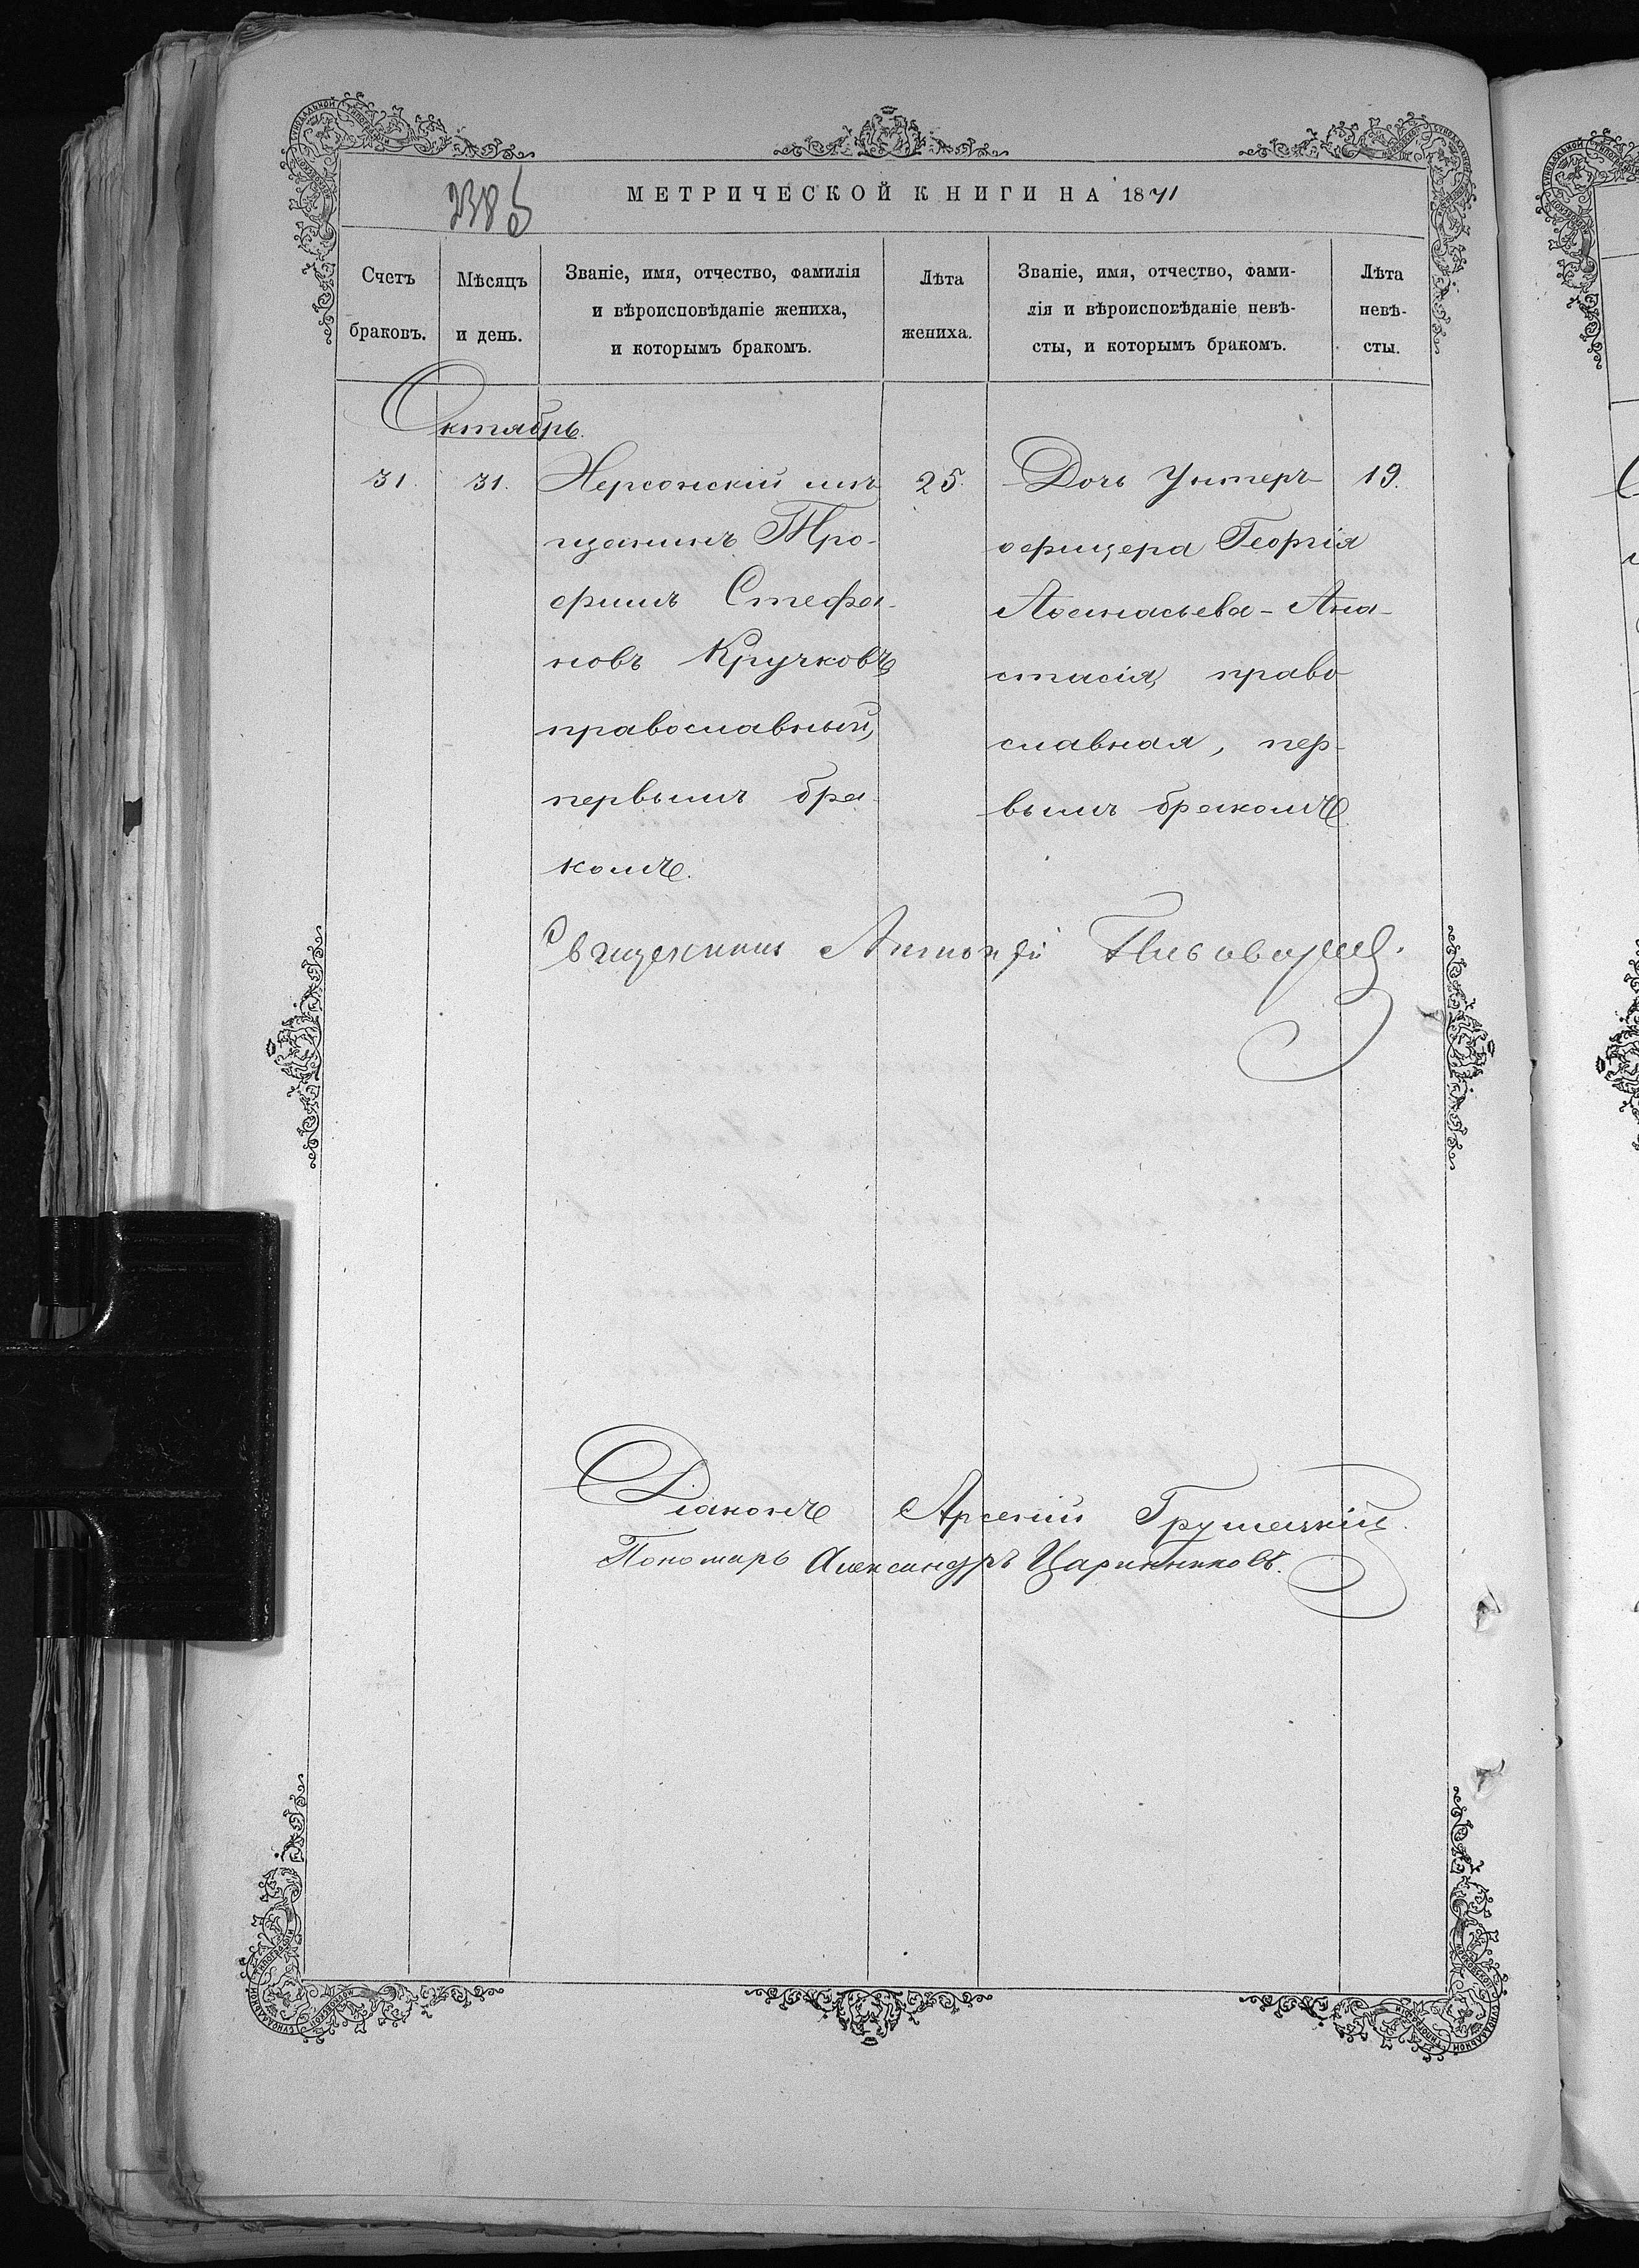 238 об
МЕТРИЧЕСКОЙ КНИГИ НА 1871
Счетъ браковъ.
Мѣсяцъ и день.
Званіе, имя, отчество, фамилія
и вѣроисповѣданіе жениха,
и которымъ бракомъ.
Лѣта жениха.
Званіе, имя, отчество, фами-
лія и вѣроисповѣданіе невѣ-
сты, и которымъ бракомъ.
Лѣта невѣ- сты.
Октябрь.
31. 31.
Херсонскій мѣ
щанинъ Тро-
фимъ Стефа-
новъ Кручковъ,
православный,
первымъ бра-
комъ.
25.
Дочь Унтеръ
офицера Георгія
Аѳанасьева - Ана-
стасія, право
славная, пер-
вымъ бракомъ
19.
Священникъ Антоній
Діаконъ Арсеній Грушецкій.
Пономарь Александръ Царинниковъ.